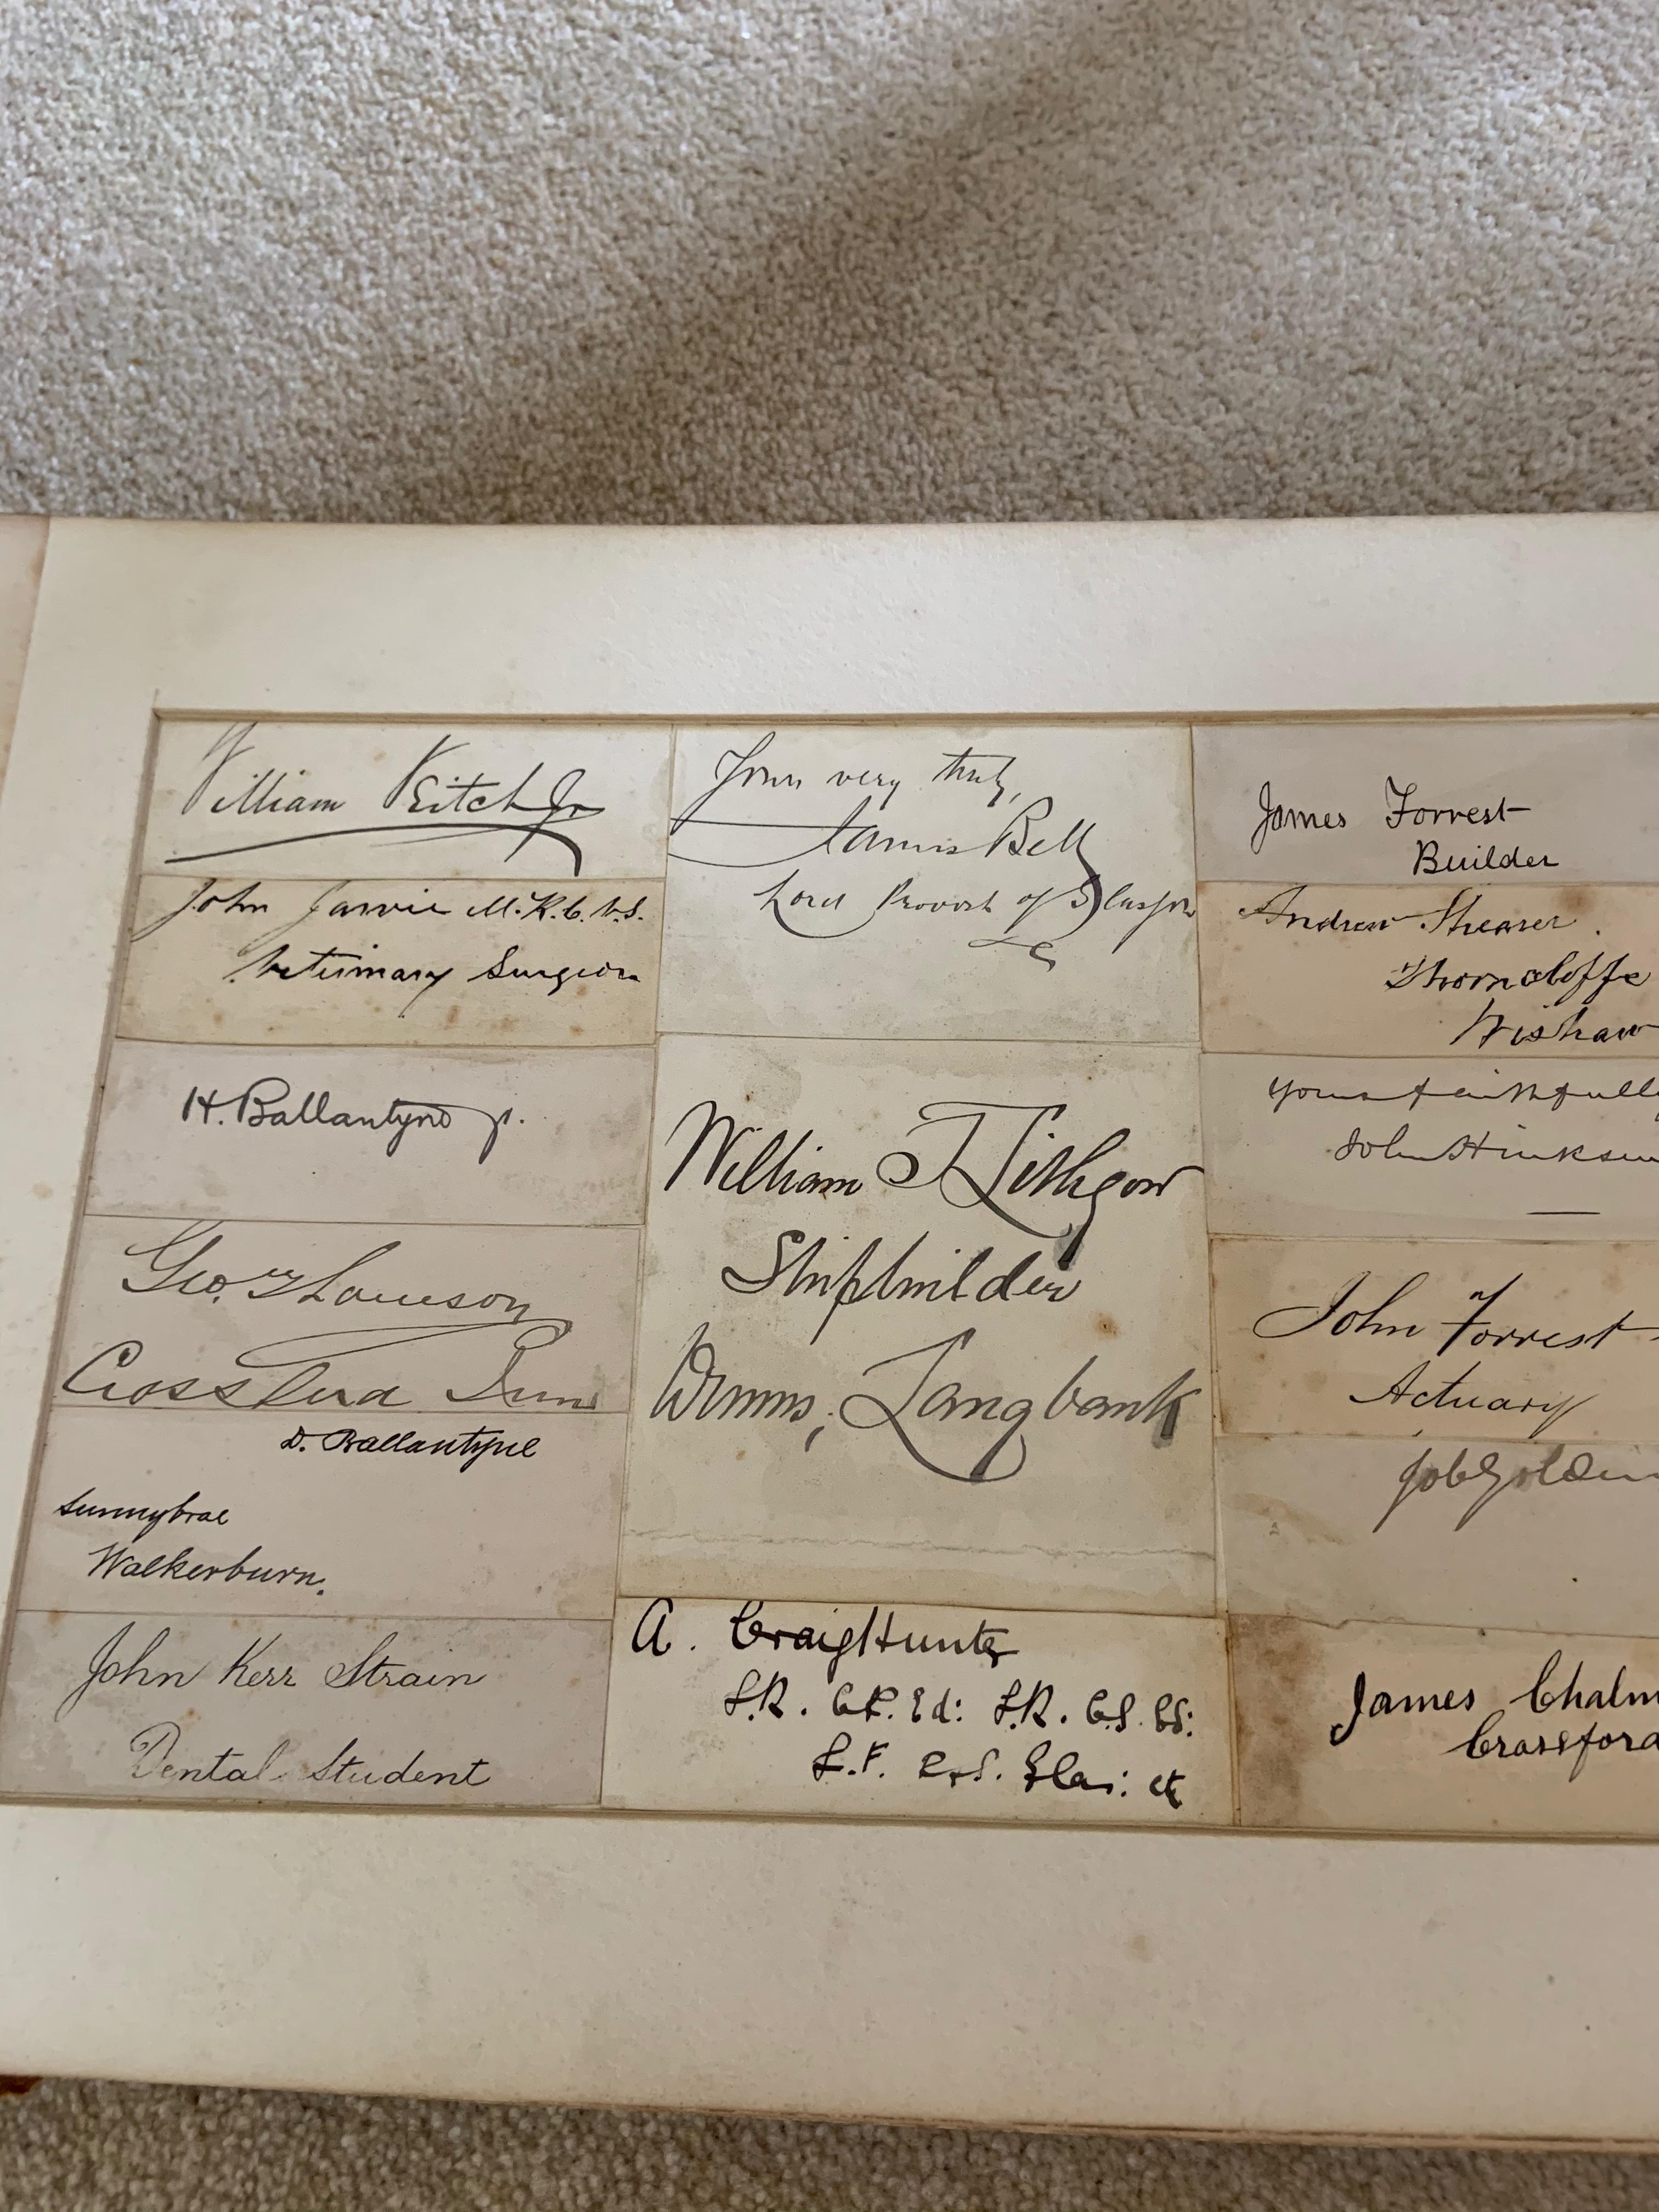 William Veitch Jr
John Jarvie M.R.C.V.S.
Veterinary Surgeon
H. Ballantyne jr.
Geo. Thomson
D. Ballantyne
Sunnybrae
Walkerburn.
John Kerr Strain
Dental Student
Yours very truly,
James Bell
Lord Provost of Glasgow
William T Lithgow
Shipbuilder
Drums, Langbank
A. Craig Hunter
L.R.C.P. Ed: L.R.C.S. Ed:
L.F.P.S. Glas: etc
James Forrest
Builder
Andrew Shearer.
Thorncliffe
Wishaw
Yours faithfully
John
John Forrest
Actuary
James